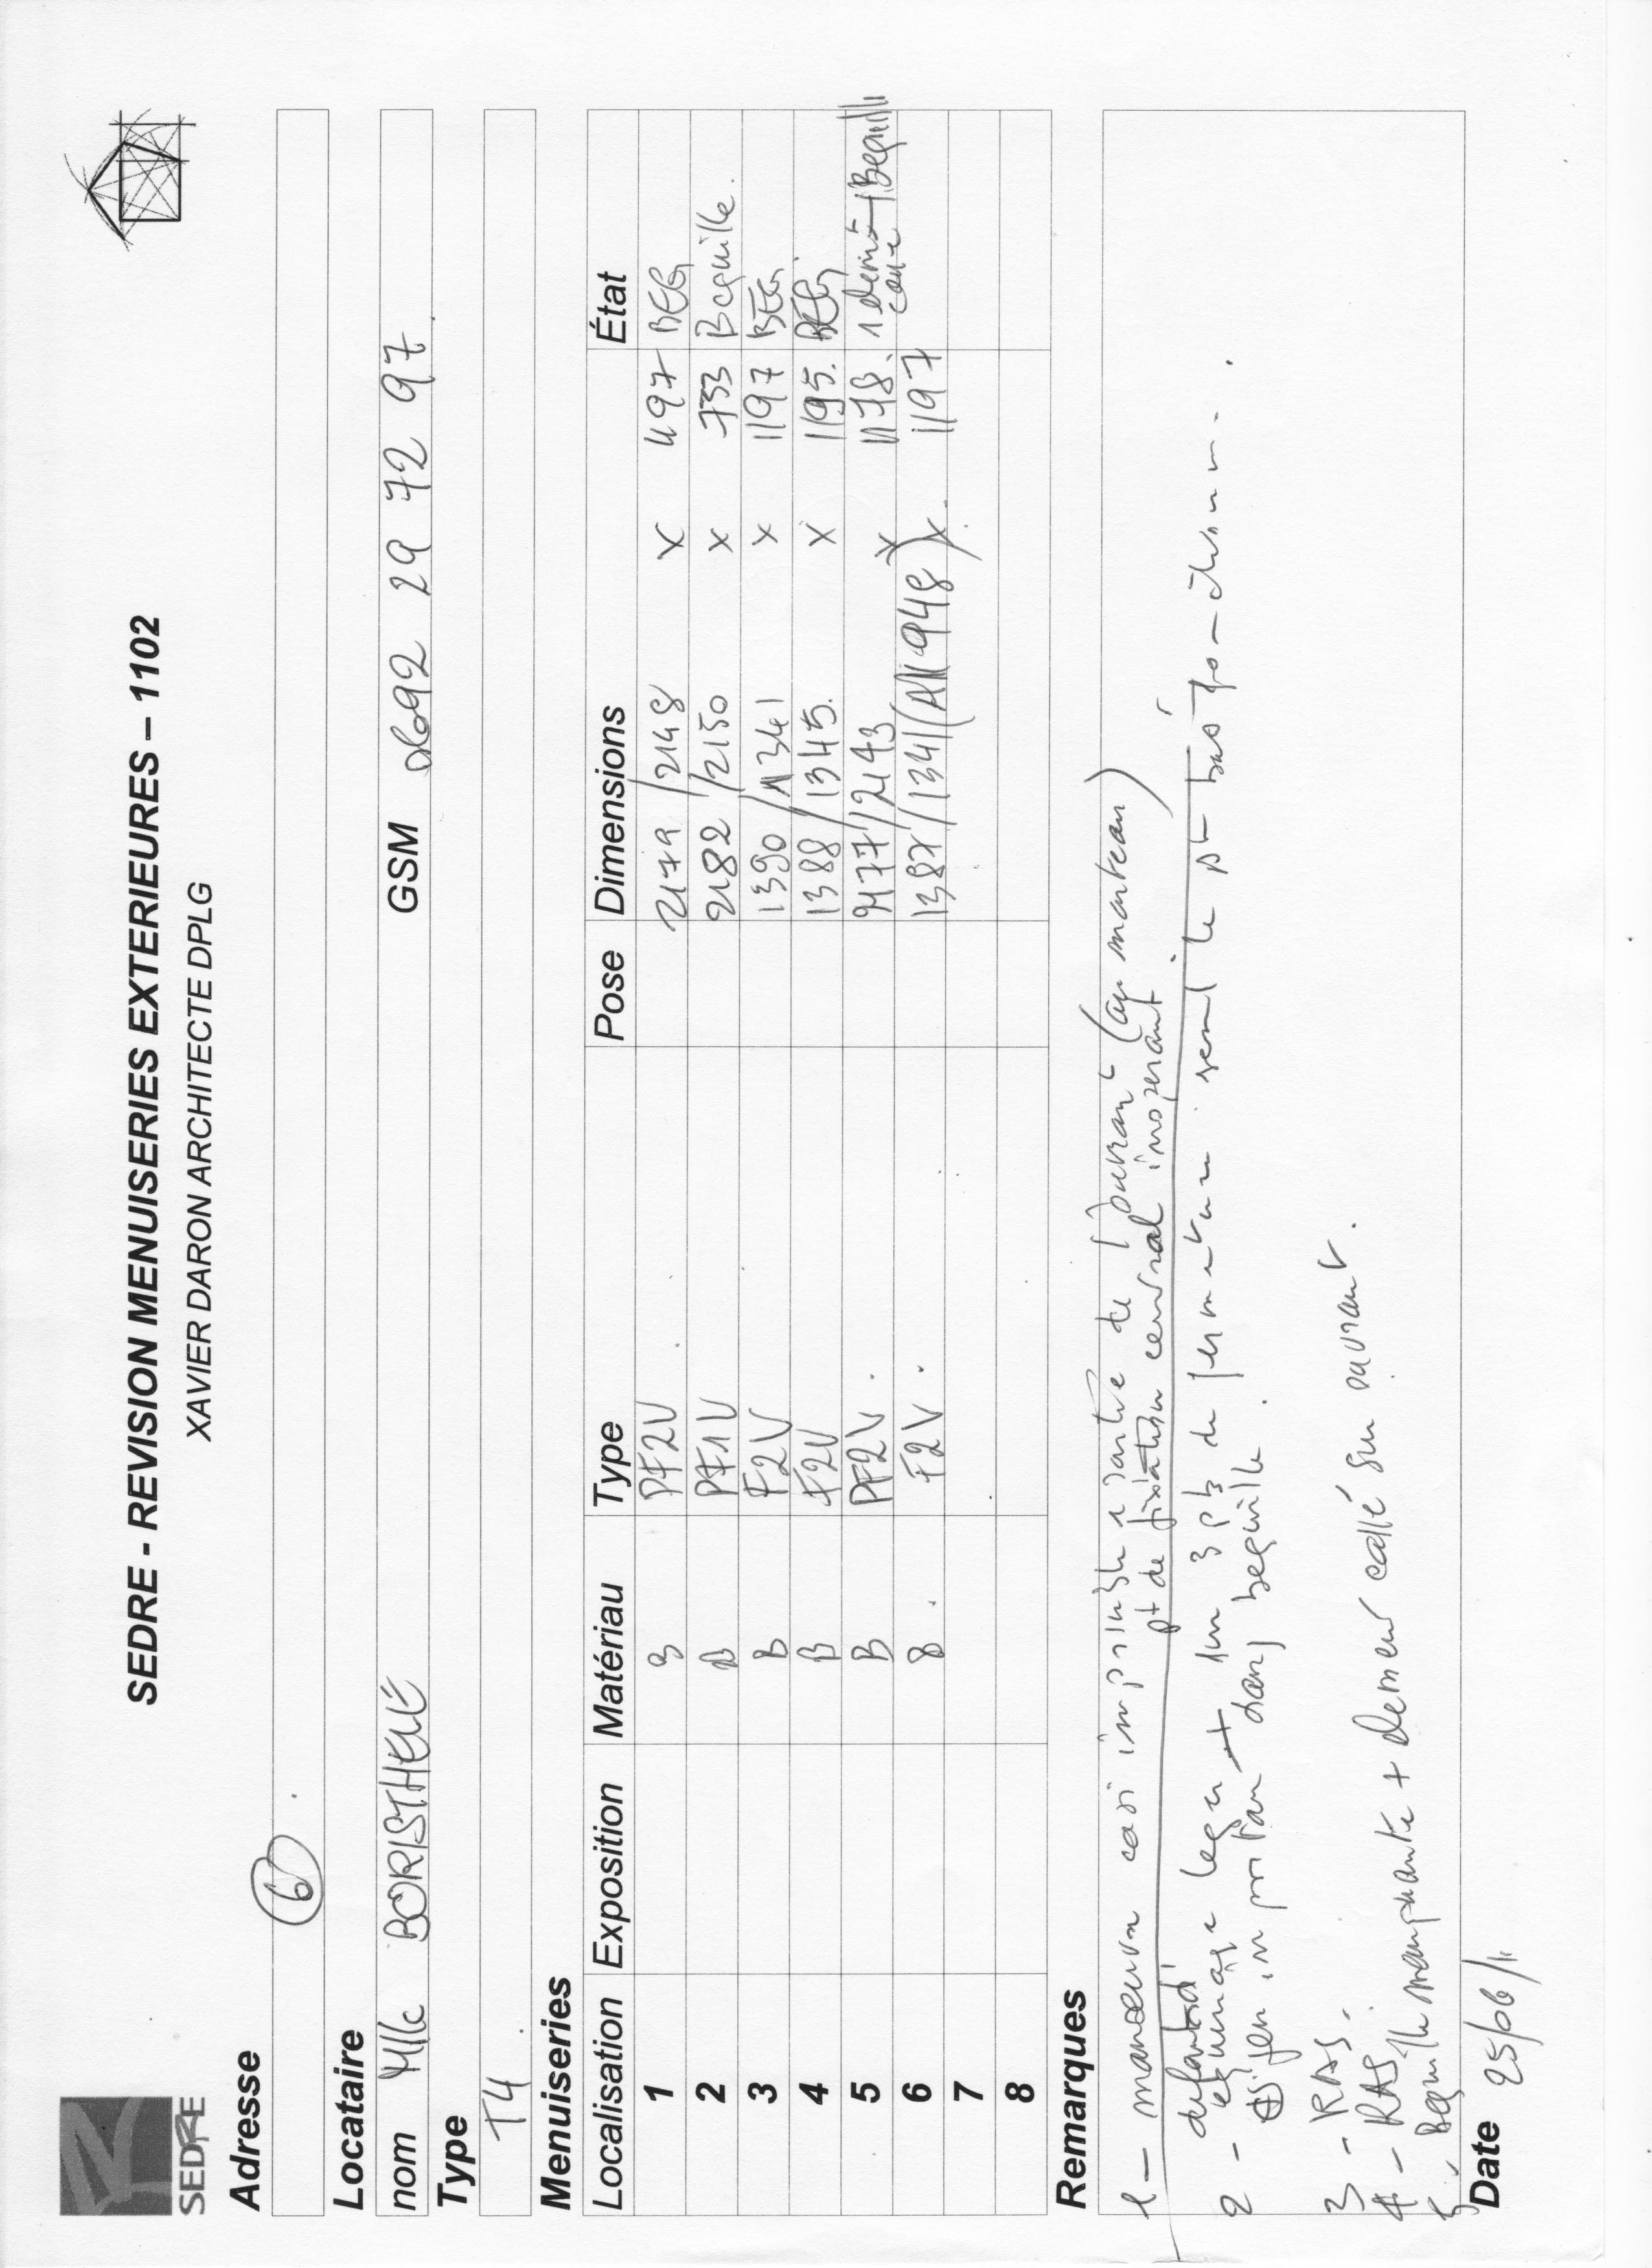 SEDRE - REVISION MENUISERIES EXTERIEURES – 1102
XAVIER DARON ARCHITECTE DPLG
SEDRE
Adresse
6
Locataire
nom Mlle BORISTHENE GSM 0692 29 72 97
Type
T4
Menuiseries
Localisation Exposition Matériau Type Pose Dimensions État
1 B PF2V 2179 /2148 x 497 BEG
2 B PF1V 2182 /2150 x 733 Bequille
3 B F2V 1390 /1341 x 1197 BEG
4 B F2V 1388 / 1345 x 1195 BEG
5 B PF2V 2177 /2143 x 1178 1 demi + Bequille
6 B F2V 1387 /1341 (All 948) x 1197
7
8
Remarques
1 – manoeuvre casi impossible de l'ouvrant (
pt de fixation central inoperant
2 – leger + sur 3 pts de fermeture seul le pt bas fonctionne
jeu dans bequille
3 – RAS
4 – RAS
5 – Bequille manquante + demeur collé sur ouvrant
Date 25/06/11